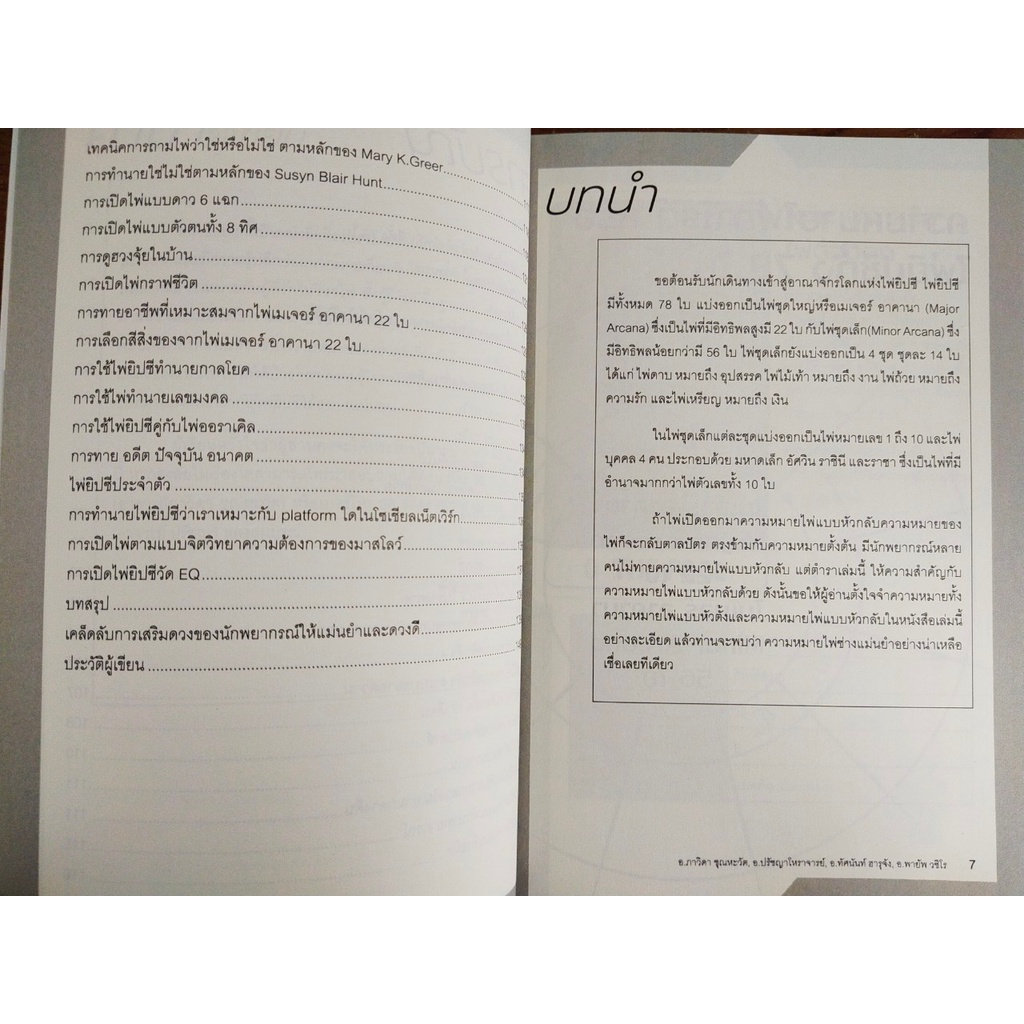 เทคนิคการถามไพ่ว่าใช่หรือไม่ใช่ ตามหลักของ Mary K.Greer
การทำนายใช่ไม่ใช่ตามหลักของ Susyn Blair Hunt
การเปิดไพ่แบบดาว 6 แฉก
การเปิดไพ่แบบตัวตนทั้ง 8 ทิศ
การดูฮวงจุ้ยในบ้าน
การเปิดไพ่กราฟชีวิต
การทายอาชีพที่เหมาะสมจากไพ่เมเจอร์ อาคานา 22 ใบ
การเลือกสีสิ่งของจากไพ่เมเจอร์ อาคานา 22 ใบ
การใช้ไพ่ยิปซีทำนายกาลโยค
การใช้ไพ่ทำนายเลขมงคล
การใช้ไพ่ยิปซีคู่กับไพ่ออราเคิล
การทาย อดีต ปัจจุบัน อนาคต
ไพ่ยิปซีประจำตัว
การทำนายไพ่ยิปซีว่าเราเหมาะกับ platform ใดในโซเชียลเน็ตเวิร์ก
การเปิดไพ่ตามแบบจิตวิทยาความต้องการของมาสโลว์
การเปิดไพ่ยิปซีวัด EQ
บทสรุป
เคล็ดลับการเสริมดวงของนักพยากรณ์ให้แม่นยำและดวงดี
ประวัติผู้เขียน
บทนำ
ขอต้อนรับนักเดินทางเข้าสู่อาณาจักรโลกแห่งไพ่ยิปซี ไพ่ยิปซี
มีทั้งหมด 78 ใบ แบ่งออกเป็นไพ่ชุดใหญ่หรือเมเจอร์ อาคานา (Major
Arcana) ซึ่งเป็นไพ่ที่มีอิทธิพลสูงมี 22 ใบ กับไพ่ชุดเล็ก(Minor Arcana) ซึ่ง
มีอิทธิพลน้อยกว่ามี 56 ใบ ไพ่ชุดเล็กยังแบ่งออกเป็น 4 ชุด ชุดละ 14 ใบ
ได้แก่ ไพ่ดาบ หมายถึง อุปสรรค ไพ่ไม้เท้า หมายถึง งาน ไพ่ถ้วย หมายถึง
ความรัก และไพ่เหรียญ หมายถึง เงิน
ในไพ่ชุดเล็กแต่ละชุดแบ่งออกเป็นไพ่หมายเลข 1 ถึง 10 และไพ่
บุคคล 4 คน ประกอบด้วย มหาดเล็ก อัศวิน ราชินี และราชา ซึ่งเป็นไพ่ที่มี
อำนาจมากกว่าไพ่ตัวเลขทั้ง 10 ใบ
ถ้าไพ่เปิดออกมาความหมายไพ่แบบหัวกลับความหมายของ
ไพ่ก็จะกลับตาลปัตร ตรงข้ามกับความหมายตั้งต้น มีนักพยากรณ์หลาย
คนไม่ทายความหมายไพ่แบบหัวกลับ แต่ตำราเล่มนี้ ให้ความสำคัญกับ
ความหมายไพ่แบบหัวกลับด้วย ดังนั้นขอให้ผู้อ่านตั้งใจจำความหมายทั้ง
ความหมายไพ่แบบหัวตั้งและความหมายไพ่แบบหัวกลับในหนังสือเล่มนี้
อย่างละเอียด แล้วท่านจะพบว่า ความหมายไพ่ช่างแม่นยำอย่างน่าเหลือ
เชื่อเลยทีเดียว
อ.ภาวิดา ชุณหะวัต, อ.ปรัชญาโหราจารย์, อ.ทัศนันท์ ฮารุจัง, อ.พายัพ วชิโร 7